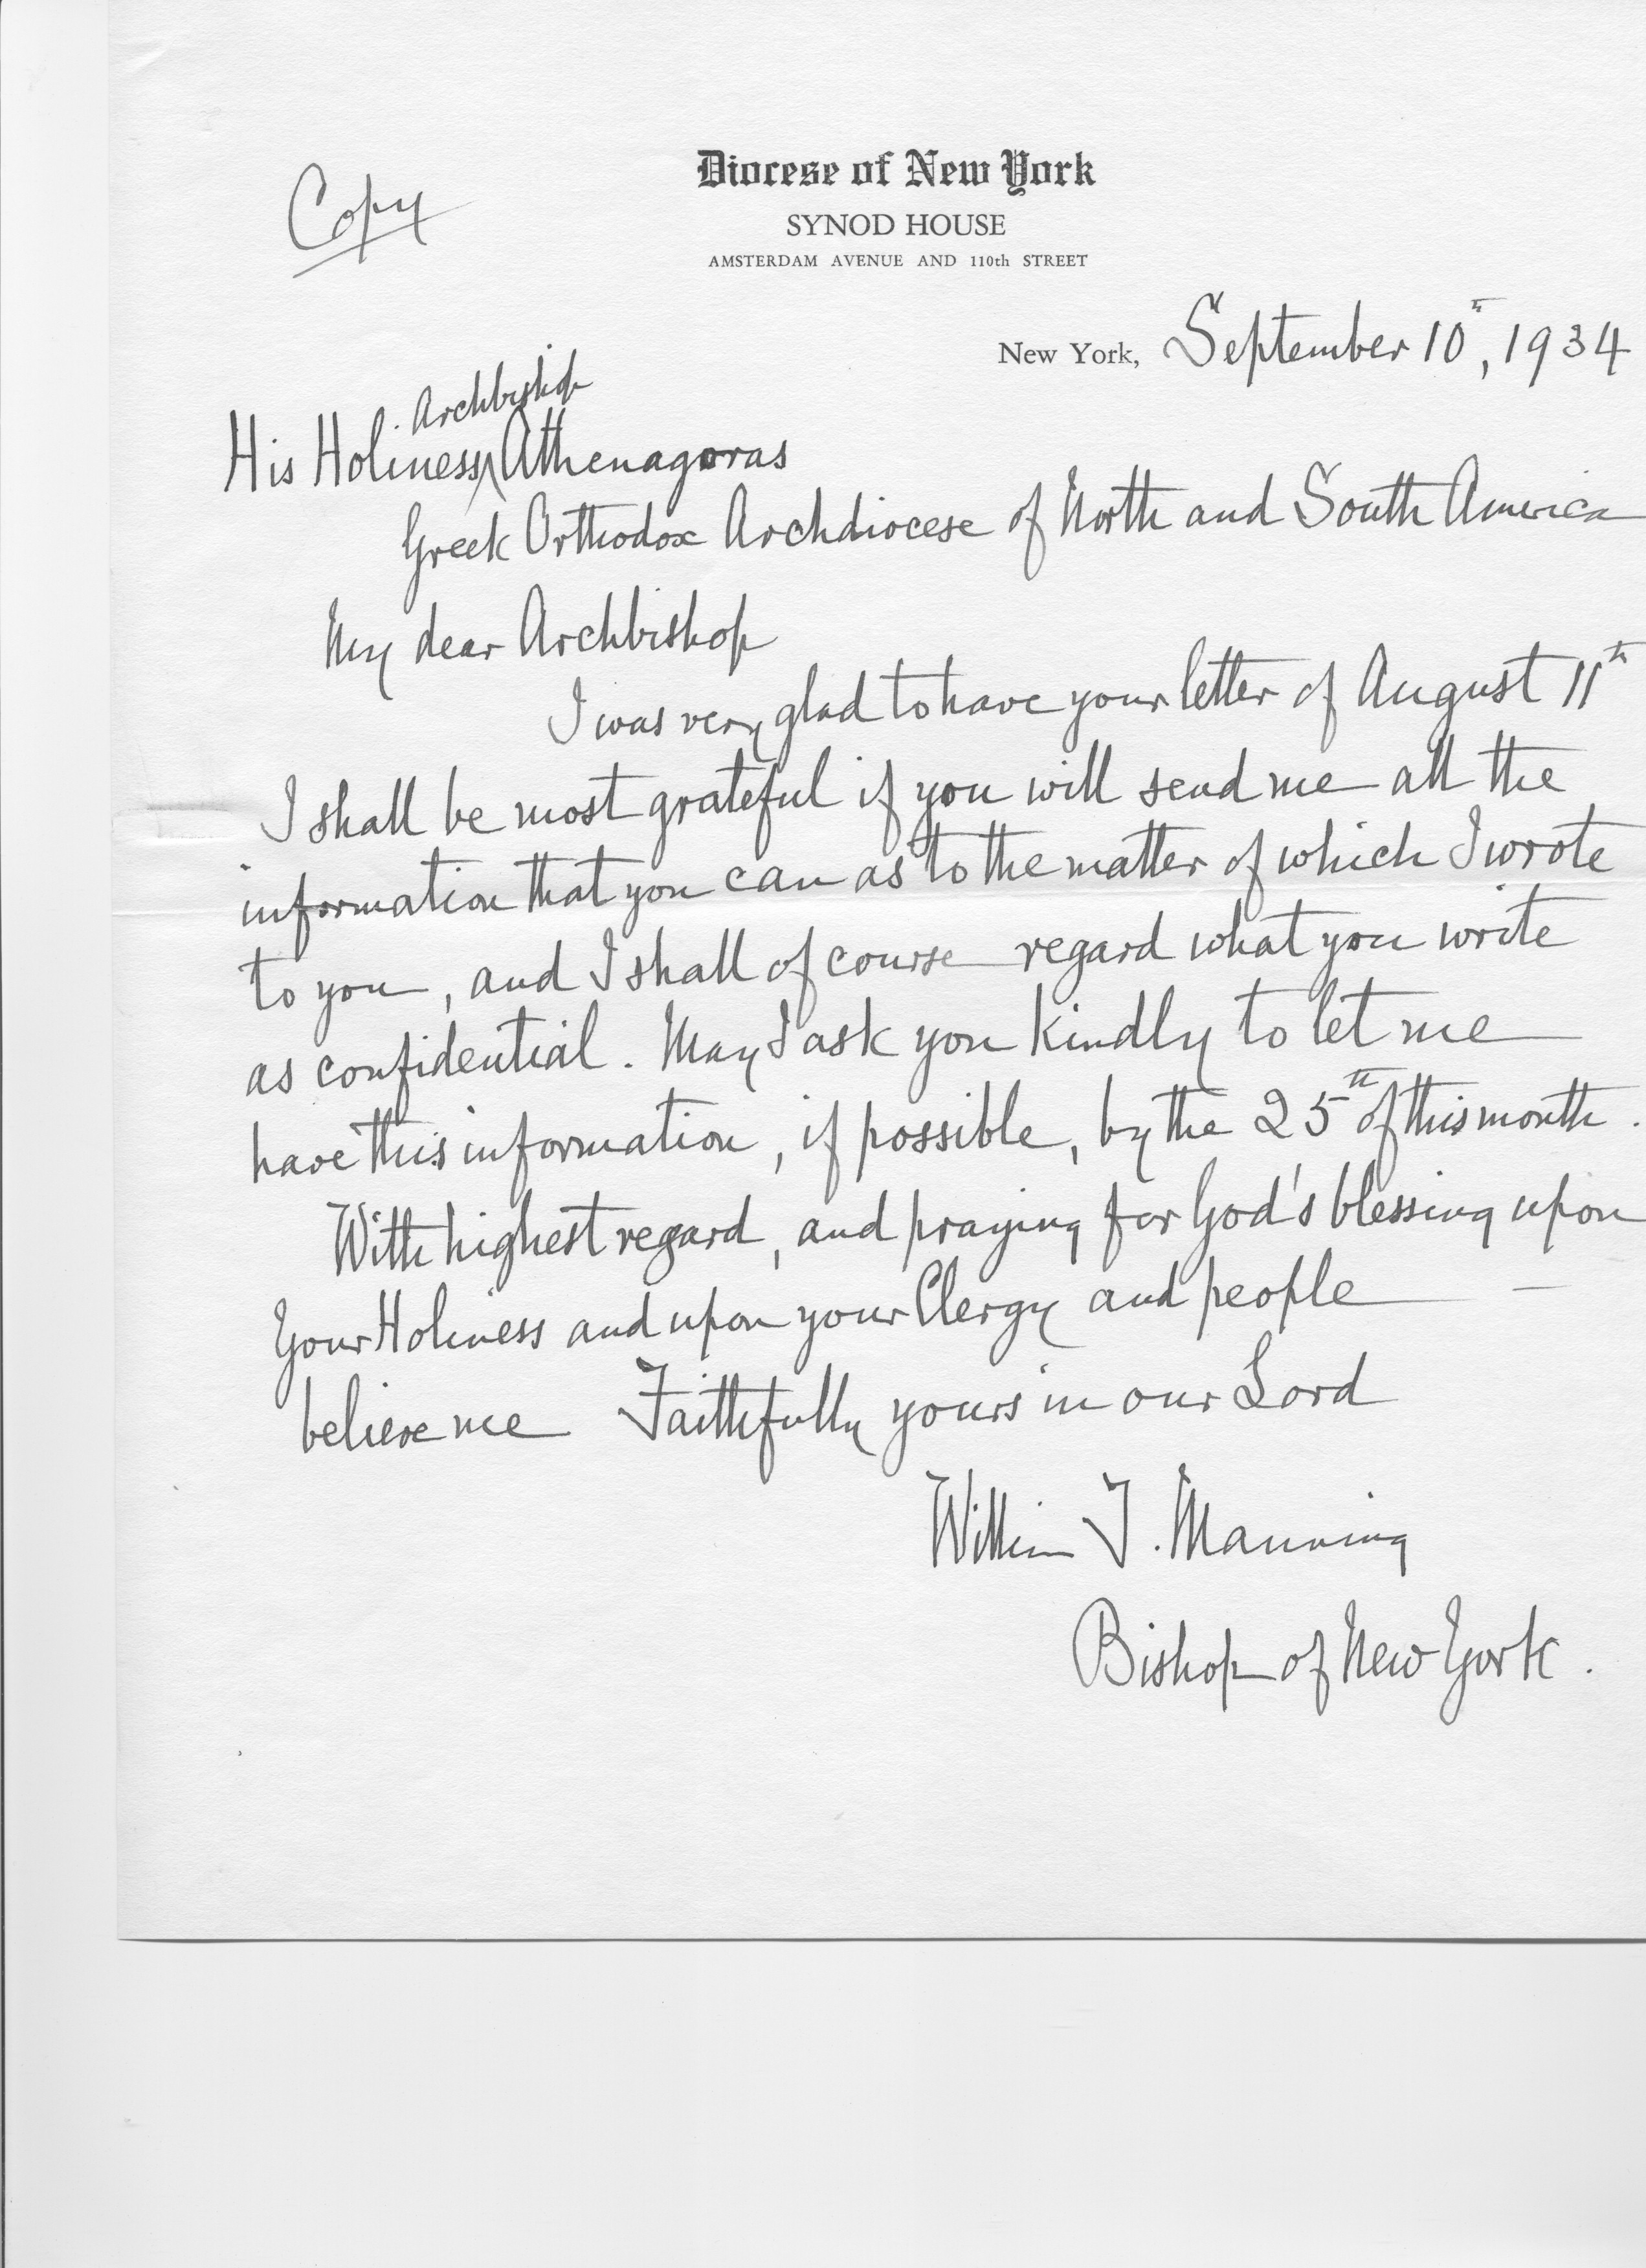 Copy
Diocese of New York
SYNOD HOUSE
AMSTERDAM AVENUE AND 110th STREET
New York, September 10th, 1934
Archbishop
His Holiness Athenagoras
Greek Orthodox Archdiocese of North and South America
My dear Archbishop
I was very glad to have your letter of August 11th
I shall be most grateful if you will send me all the
information that you can as to the matter of which I wrote
to you, and I shall of course regard what you write
as confidential. May I ask you kindly to let me
have this information, if possible, by the 25th of this month.
With highest regard, and praying for God's blessing upon
Your Holiness and upon your Clergy and people —
believe me Faithfully yours in our Lord
William T. Manning
Bishop of New York.